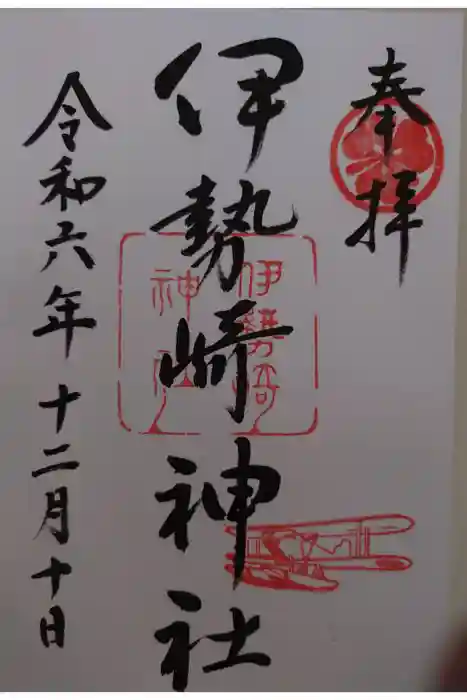 奉拝
伊勢崎神社
伊勢崎
神社
令和六年十二月十日